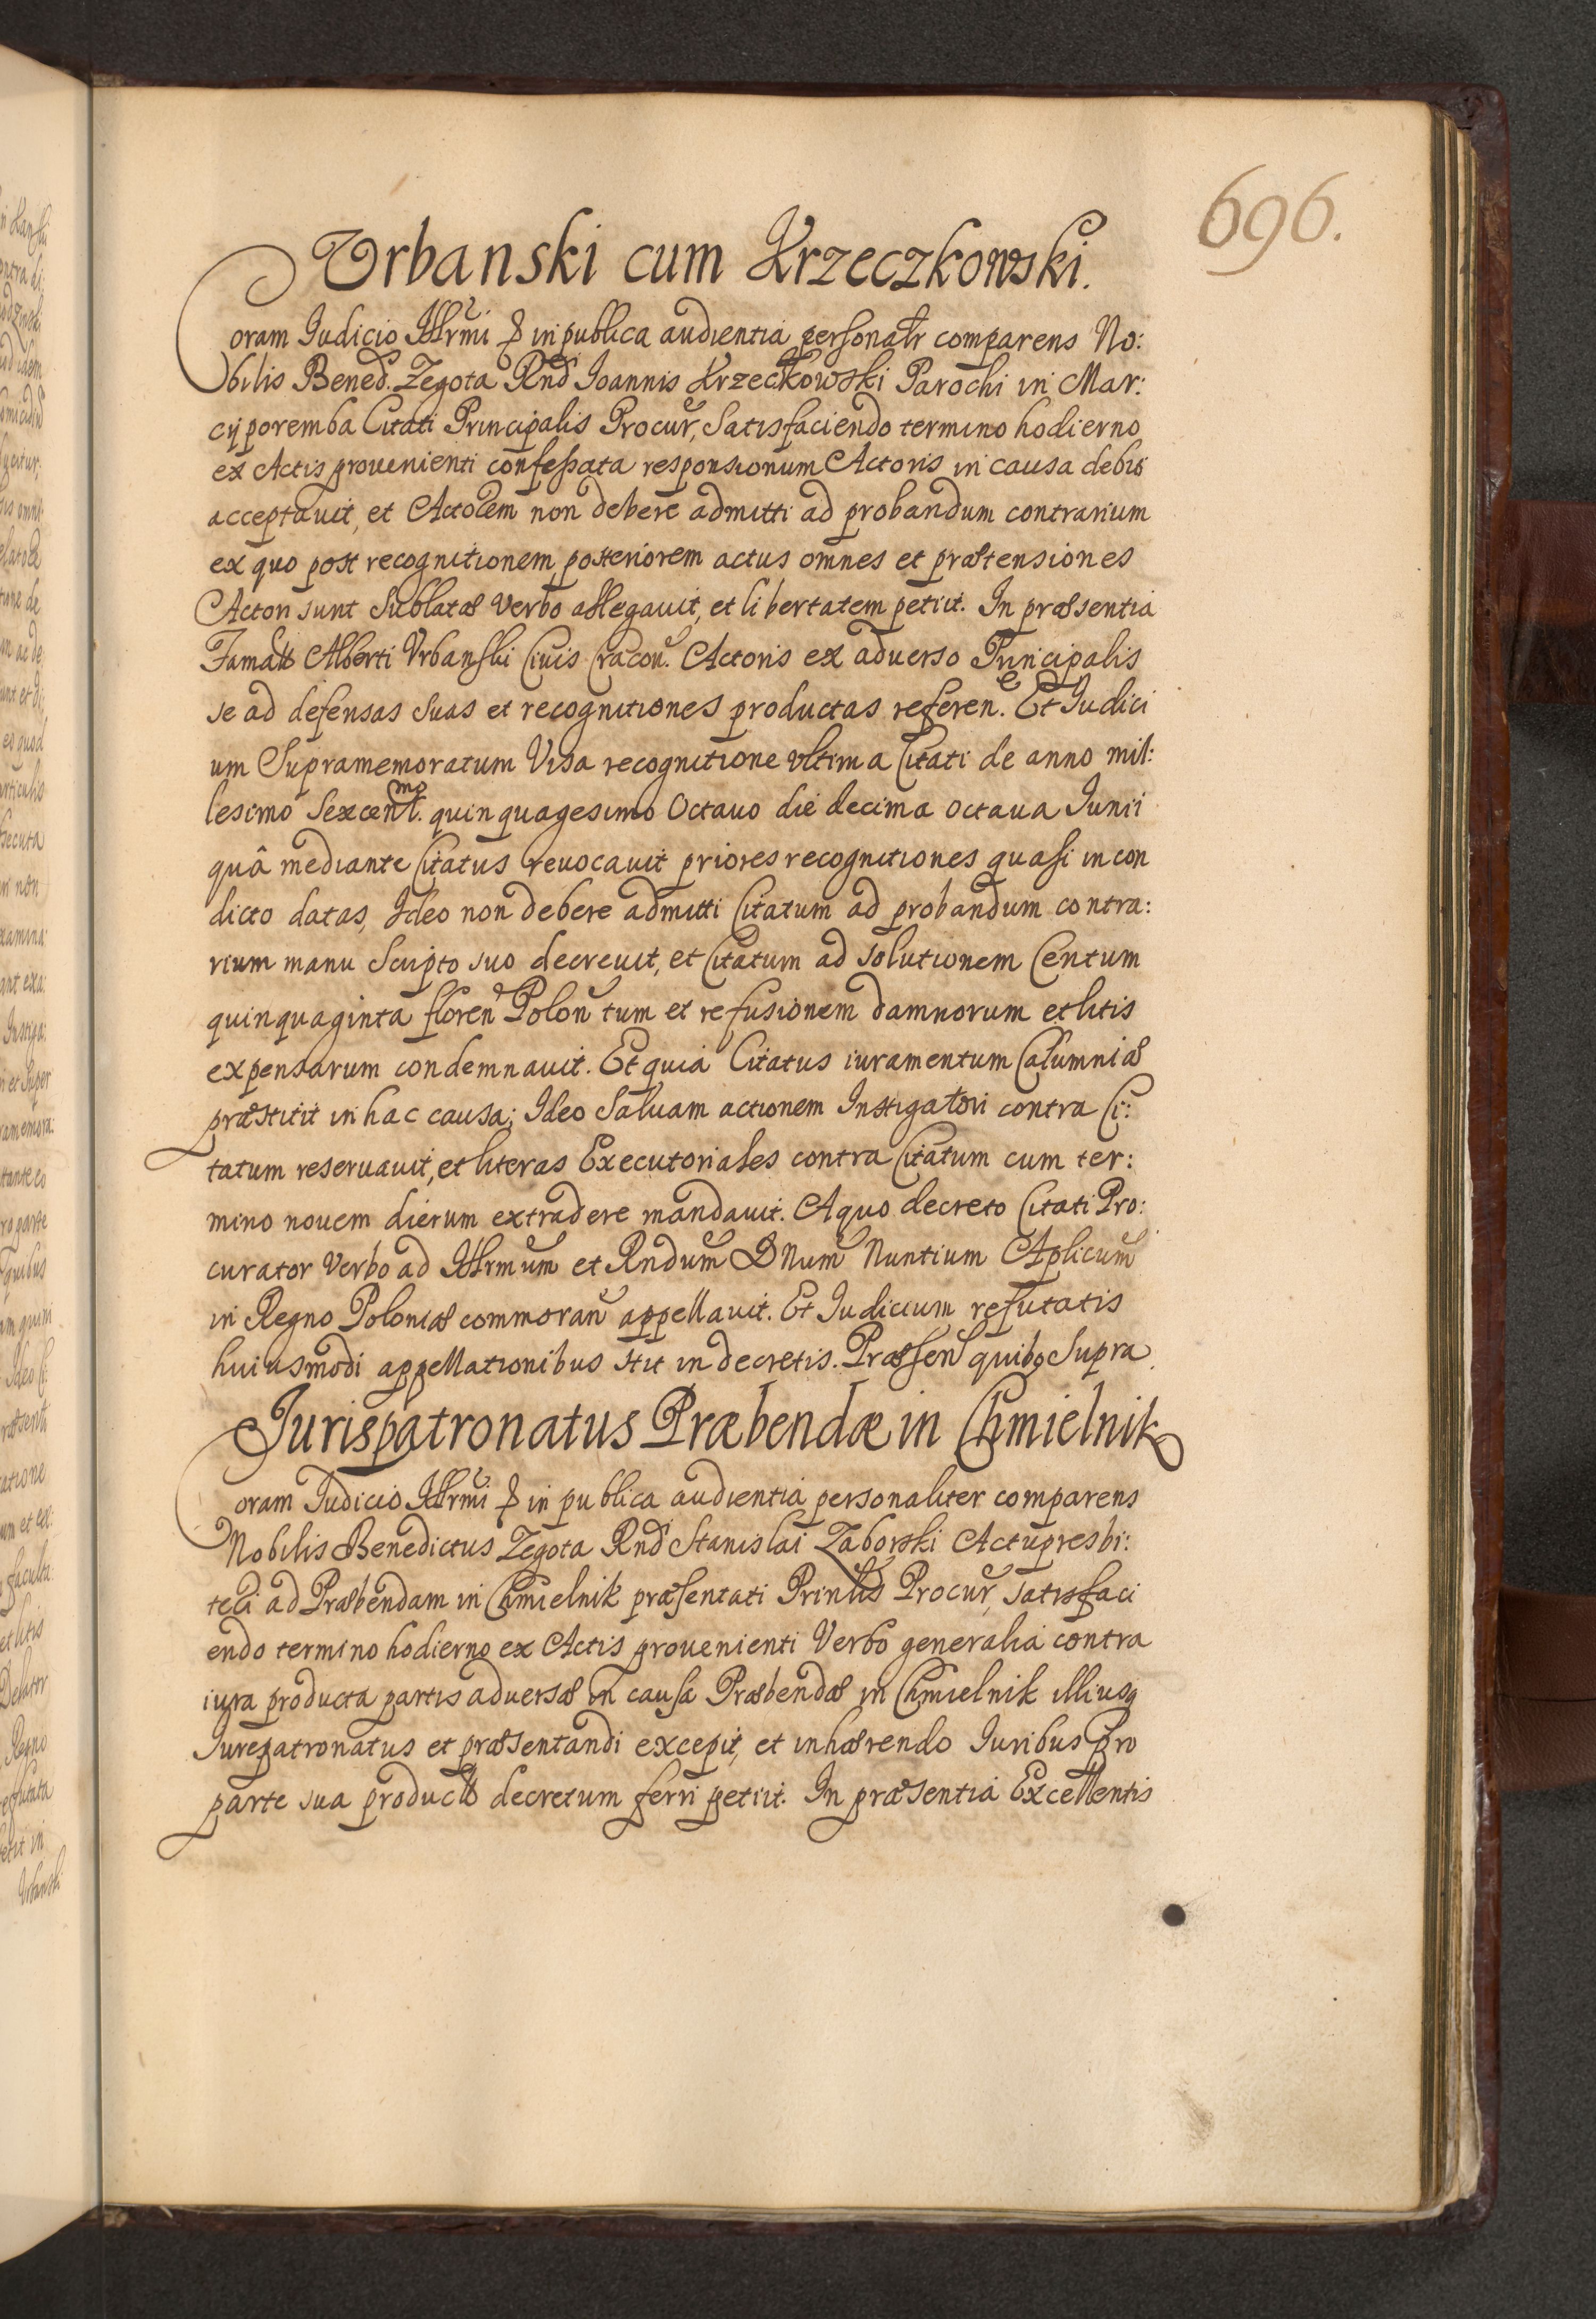 696.
Vrbanski cum Krzeczkowski.
Coram Iudicio Illrmi & in publica audientia personalr comparens No:
bilis Bened. Zegota Rnd Ioannis Krzeczkowski Parochi in Mar:
cyporemba Citati Principalis Procur, Satisfaciendo termino hodierno
ex Actis prouenienti confessata responsionum Actoris in causa debiti
acceptauit, et Actorem non debere admitti ad probandum contrarium
ex quo post recognitionem posteriorem actus omnes et prætensiones
Actori sunt Sublatæ Verbo allegauit, et libertatem petiit. In præsentia
Famati Alberti Vrbanski Ciuis Cracou. Actoris ex aduerso Principalis
se ad defensas Suas et recognitiones productas referen. Et Iudici
um Supramemoratum Visa recognitione vltima Citati de anno mil:
lesimo Sexcent.mo quinquagesimo Octauo die decima octaua Iunii
quâ mediante Citatus reuocauit priores recognitiones quasi in con
dicto datas, Ideo non debere admitti Citatum ad probandum contra:
rium manu Scripto suo decreuit, et Citatum ad solutionem Centum
quinquaginta floren Polon tum et refusionem damnorum et litis
expensarum condemnauit. Et quia Citatus iuramentum Calumniæ
præstitit in hac causa; Ideo Saluam actionem Instigatori contra Ci:
tatum reseruauit, et literas Executoriales contra Citatum cum ter:
mino nouem dierum extradere mandauit. A quo decreto Citati Pro:
curator Verbo ad Illrmum et Rndum DNum Nuntium Aplicum
in Regno Poloniæ commoran appellauit. Et Iudicium refutatis
huiusmodi appellationibus stit in decretis. Præsen quibq Supra
Jurispatronatus Præbendæ in Chmielnik
Coram Iudicio Illrmi & in publica audientia personaliter comparens
Nobilis Benedictus Zegota Rnd Stanislai Zaborski Actupresbi:
teri ad Præbendam in Chmielnik præsentati Prinlis Procur, satisfaci
endo termino hodierno ex Actis prouenienti Verbo generalia contra
iura producta partis aduersæ in causa Præbendæ in Chmielnik illiusq
Iurepatronatus et præsentandi excepit, et inhærendo Iuribus pro
parte sua productis decretum ferri petiit. In præsentia Excellentis